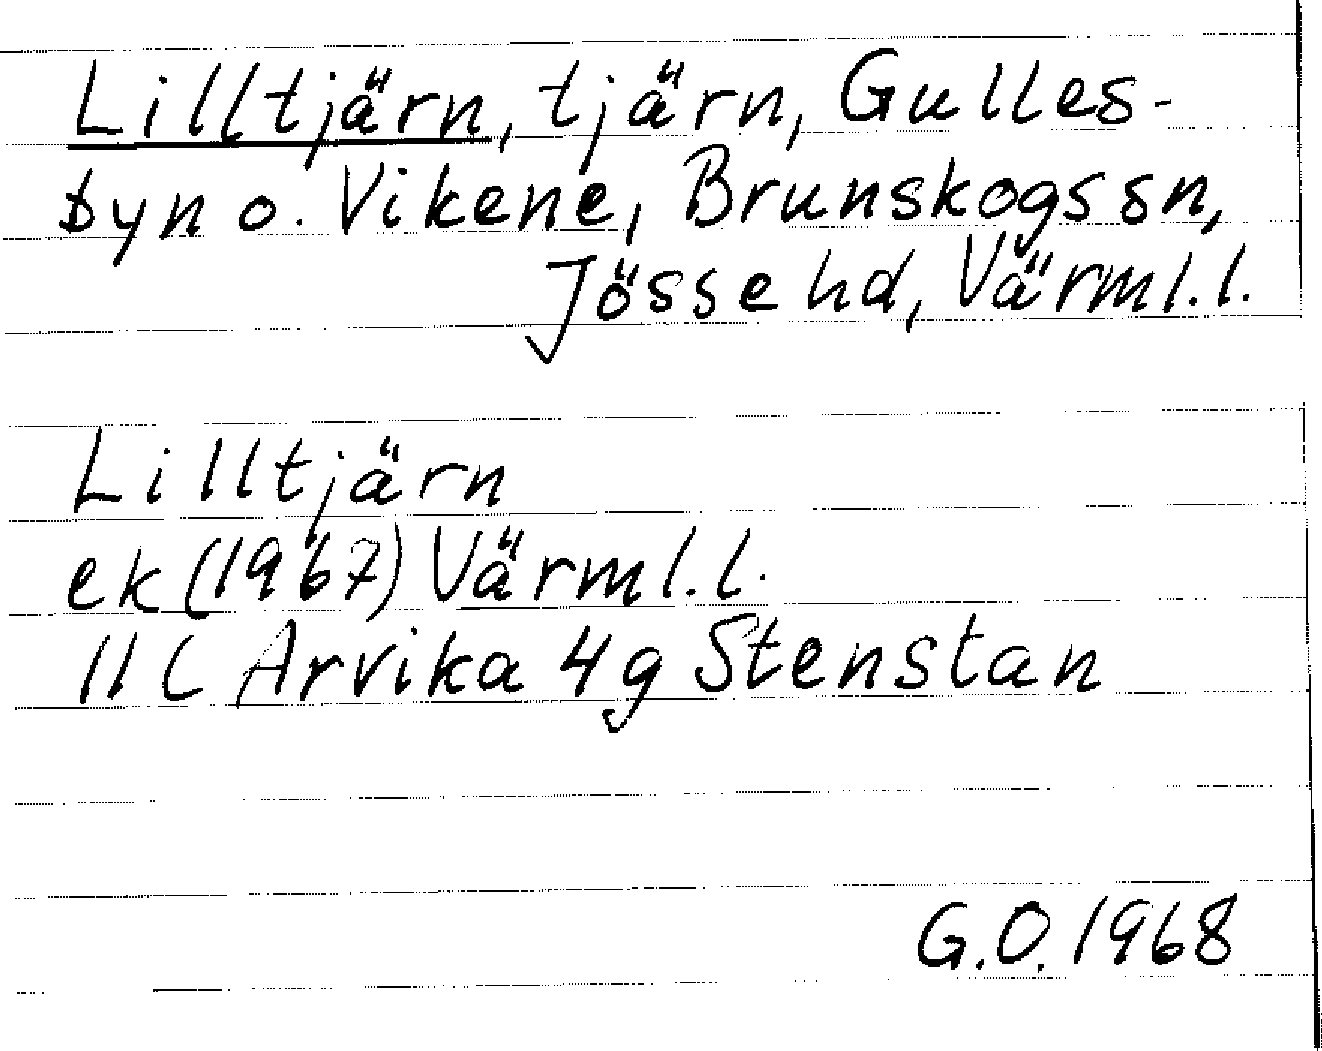 Lilltjärn, tjärn, Gulles-
byn o. Vikene, Brunskogs sn,
Jösse hd, Värml. l.
Lilltjärn
ek (1967) Värml. l.
11 C Arvika 4g Stenstan
G.O. 1968